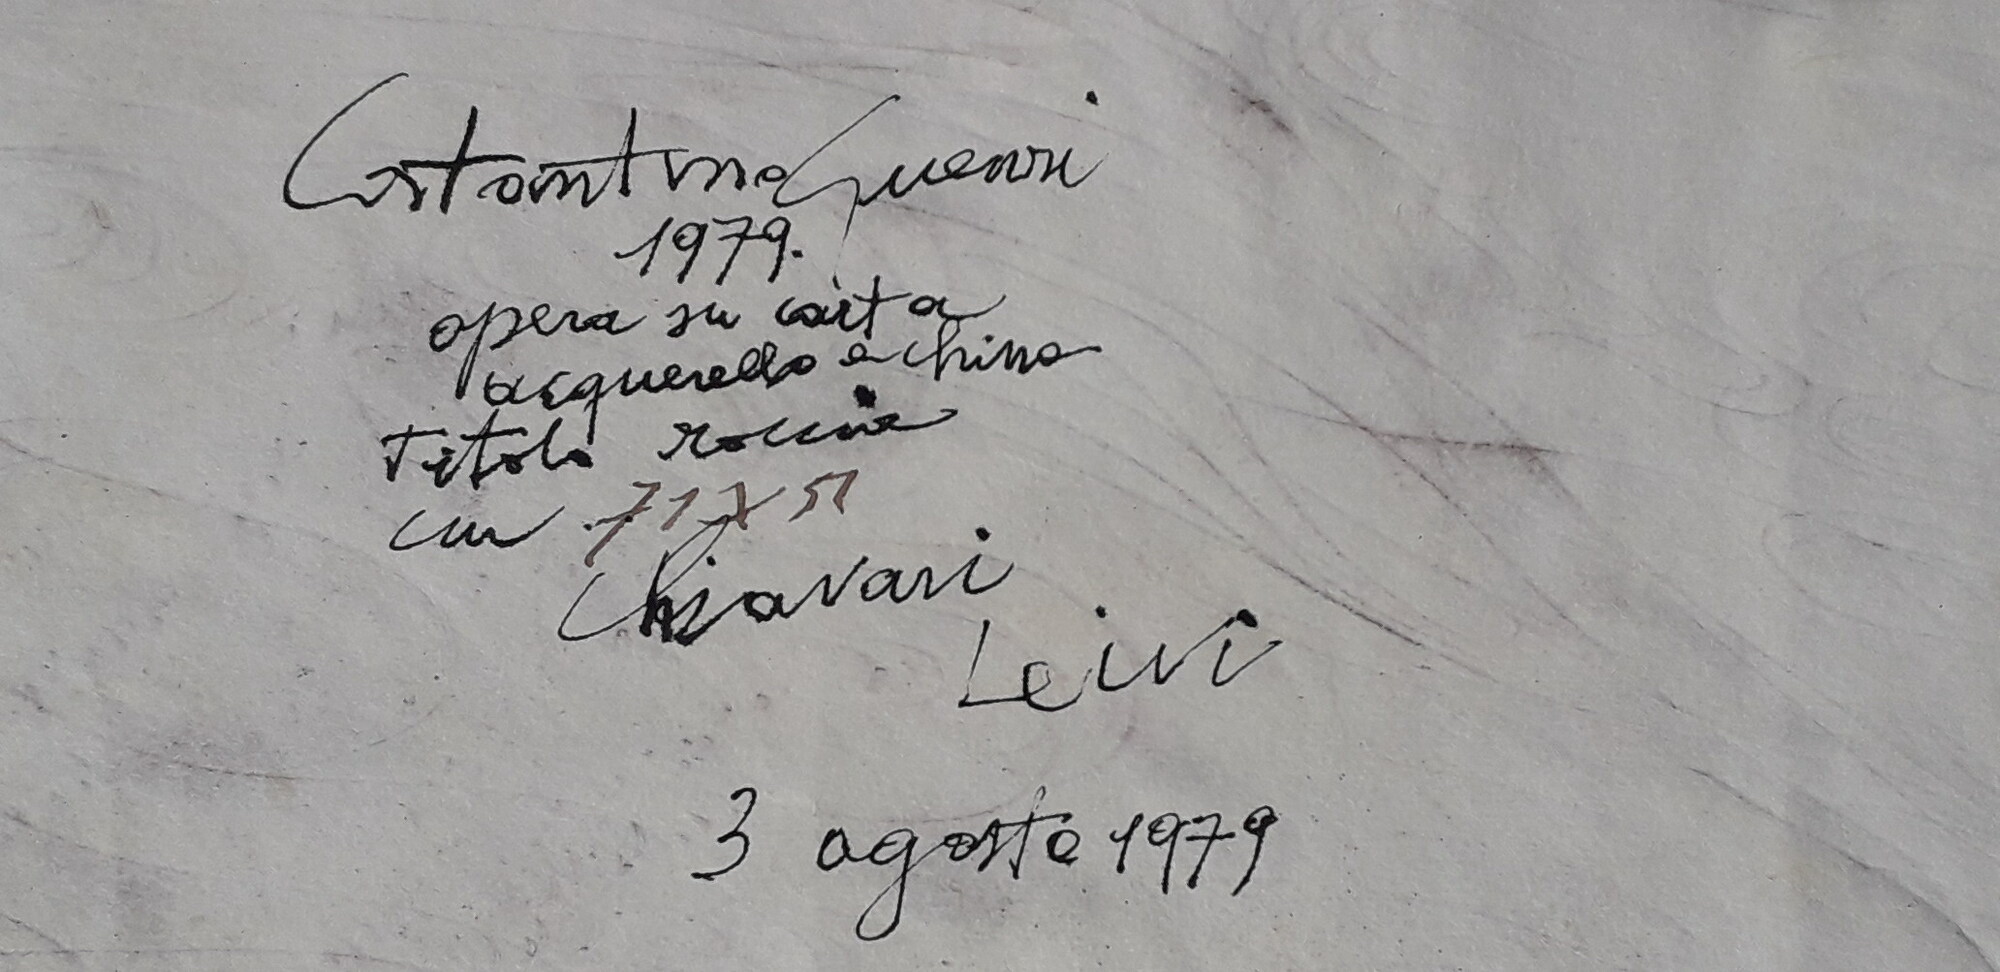 Costantino Guenzi
1979.
opera su carta
acquerello e china
Titolo roccia
cm 71 x 51
Chiavari
Leivi
3 agosto 1979